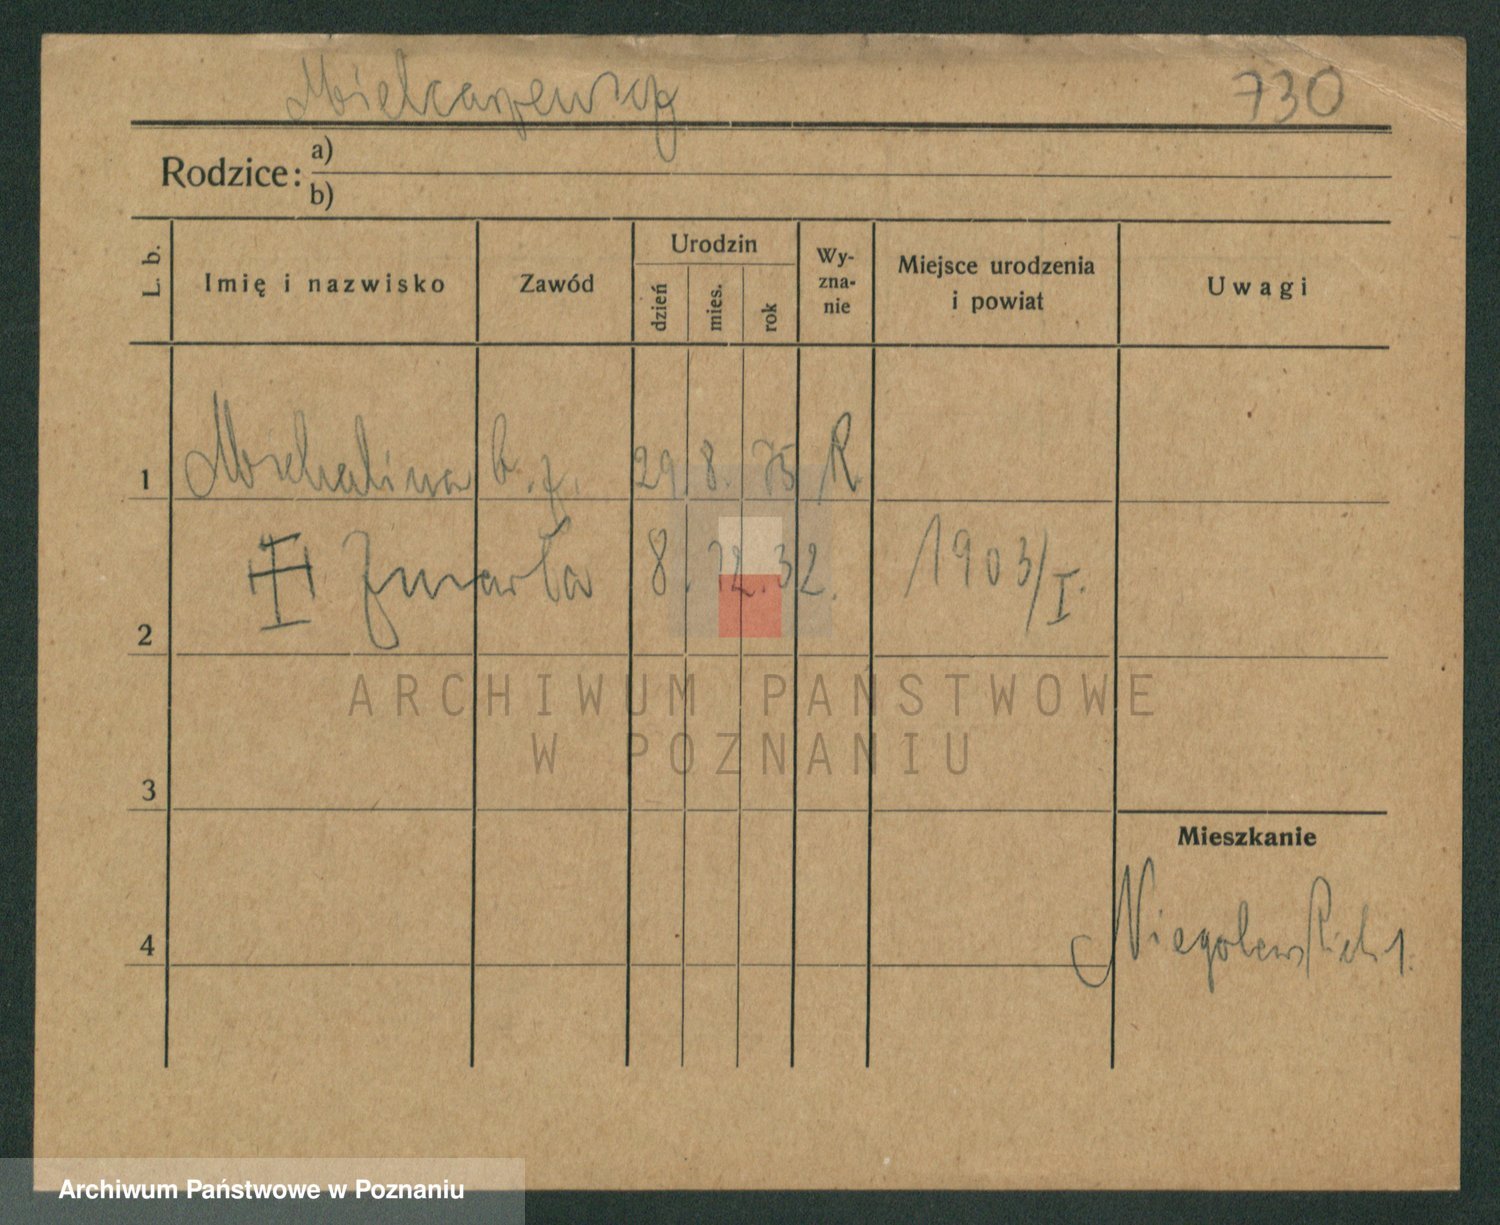 730
Rodzice: a)
b)
L. b.
Imię i nazwisko
Zawód
Urodzin
dzień
mies.
rok
Wy-
zna-
nie
Miejsce urodzenia
i powiat
Uwagi
1 Michalina b. z. 29. 8. 75 R.
2 Zmarła 8. 12. 32. 1903/I.
ARCHIWUM PAŃSTWOWE
W POZNANIU
3
Mieszkanie
Niegolewskich 1.
4
Archiwum Państwowe w Poznaniu